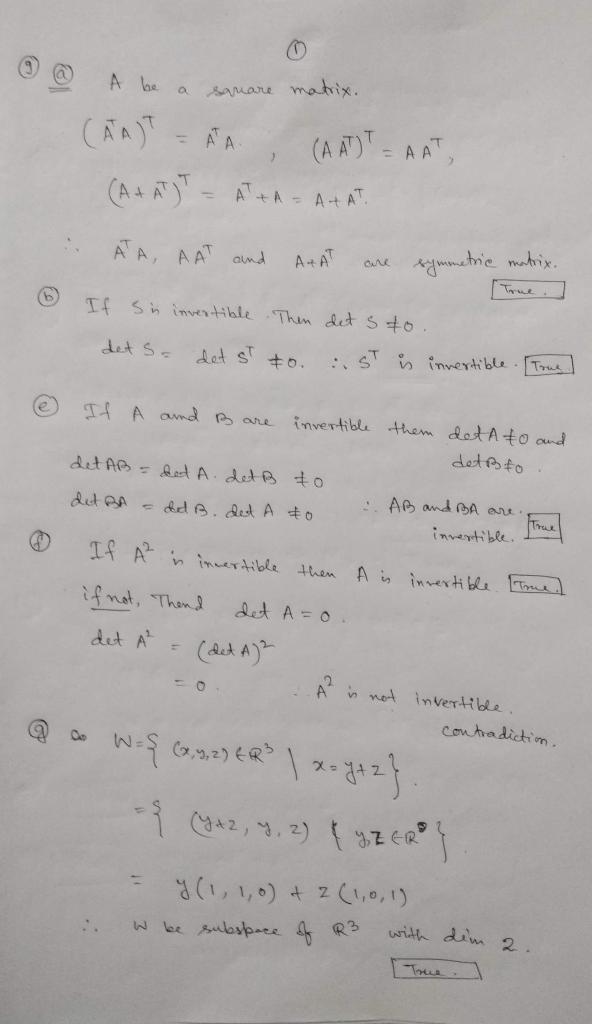 ①
⑨ ⓐ A be a square matrix.
(AᵀA)ᵀ = AᵀA. , (AAᵀ)ᵀ = AAᵀ,
(A+Aᵀ)ᵀ = Aᵀ+A = A+Aᵀ.
∴ AᵀA, AAᵀ and A+Aᵀ are symmetric matrix.
True.
ⓑ If S is invertible. Then det S ≠0.
det S = det Sᵀ ≠0. ∴ Sᵀ is invertible. True
ⓔ If A and B are invertible them det A ≠0 and
det B ≠0.
det AB = det A. det B ≠0
det BA = det B. det A ≠0 ∴ AB and BA are
invertible. True
ⓕ If A² is invertible then A is invertible. True.
if not, Thend det A = 0.
det A² = (det A)²
= 0. ∴ A² is not invertible.
contradiction.
ⓖ W = { (x,y,z) ∈ R³ | x = y+z }.
= { (y+z, y, z) { y,z ∈ R }.
= y(1,1,0) + z(1,0,1)
∴ W be subspace of R³ with dim 2.
True.